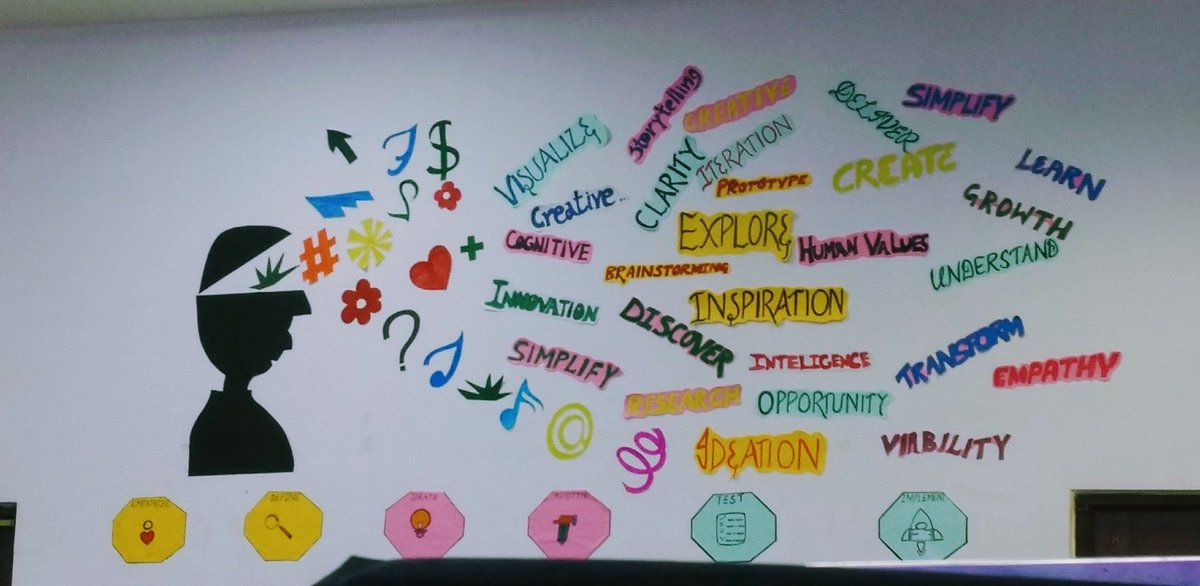 Storytelling
CREATIVE
DELIVER
SIMPLIFY
VISUALIZE
CLARITY
ITERATION
CREATE
LEARN
Creative..
PROTOTYPE
GROWTH
EXPLORE
HUMAN VALUES
COGNITIVE
UNDERSTAND
BRAINSTORMING
INNOVATION
DISCOVER
INSPIRATION
SIMPLIFY
INTELIGENCE
TRANSFORM
EMPATHY
RESEARCH
OPPORTUNITY
IDEATION
VIABILITY
EMPATHIZE
DEFINE
IDEATE
PROTOTYPE
TEST
IMPLEMENT
$
#
+
?
@